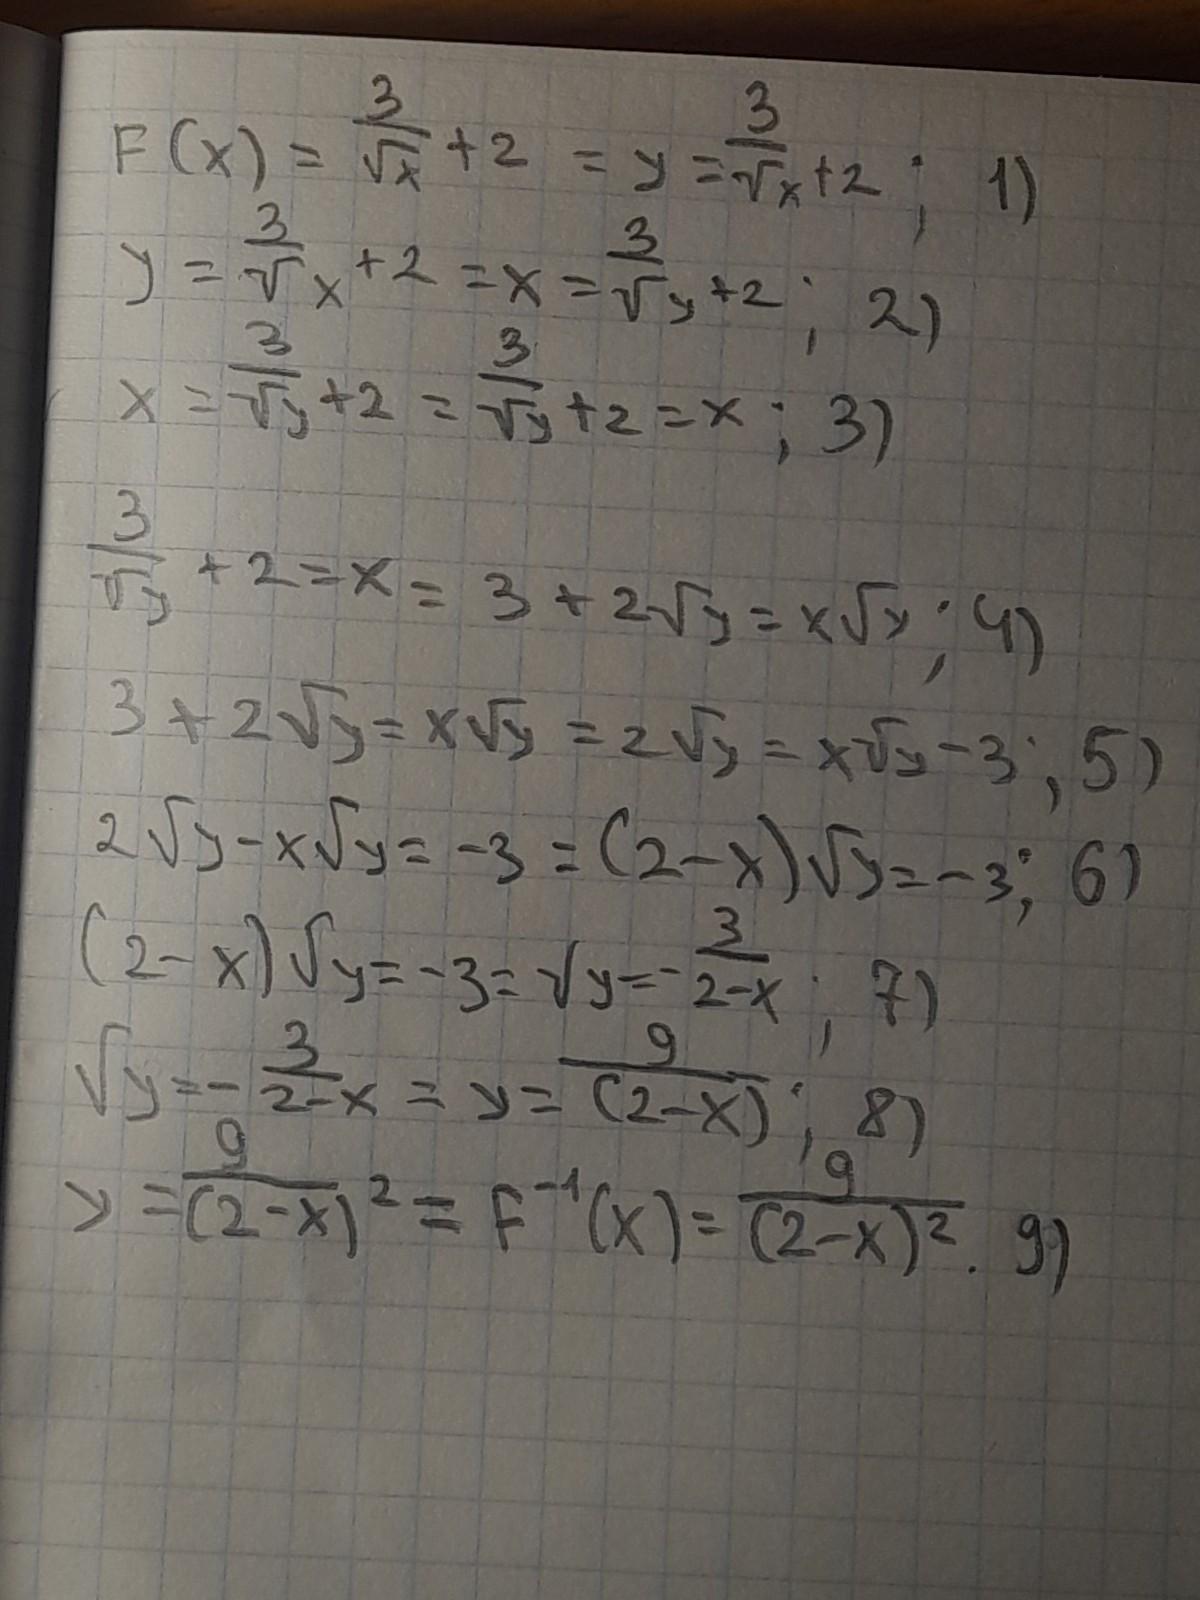 F(x) = 3/√x + 2 = y = 3/√x + 2 ; 1)
y = 3/√x + 2 = x = 3/√y + 2 ; 2)
x = 3/√y + 2 = 3/√y + 2 = x ; 3)
3/√y + 2 = x = 3 + 2√y = x√y ; 4)
3 + 2√y = x√y = 2√y = x√y - 3 ; 5)
2√y - x√y = -3 = (2 - x)√y = -3 ; 6)
(2 - x)√y = -3 = √y = - 3/(2-x) ; 7)
√y = - 3/(2-x) = y = 9/(2-x) ; 8)
y = 9/(2-x)² = F⁻¹(x) = 9/(2-x)² . 9)